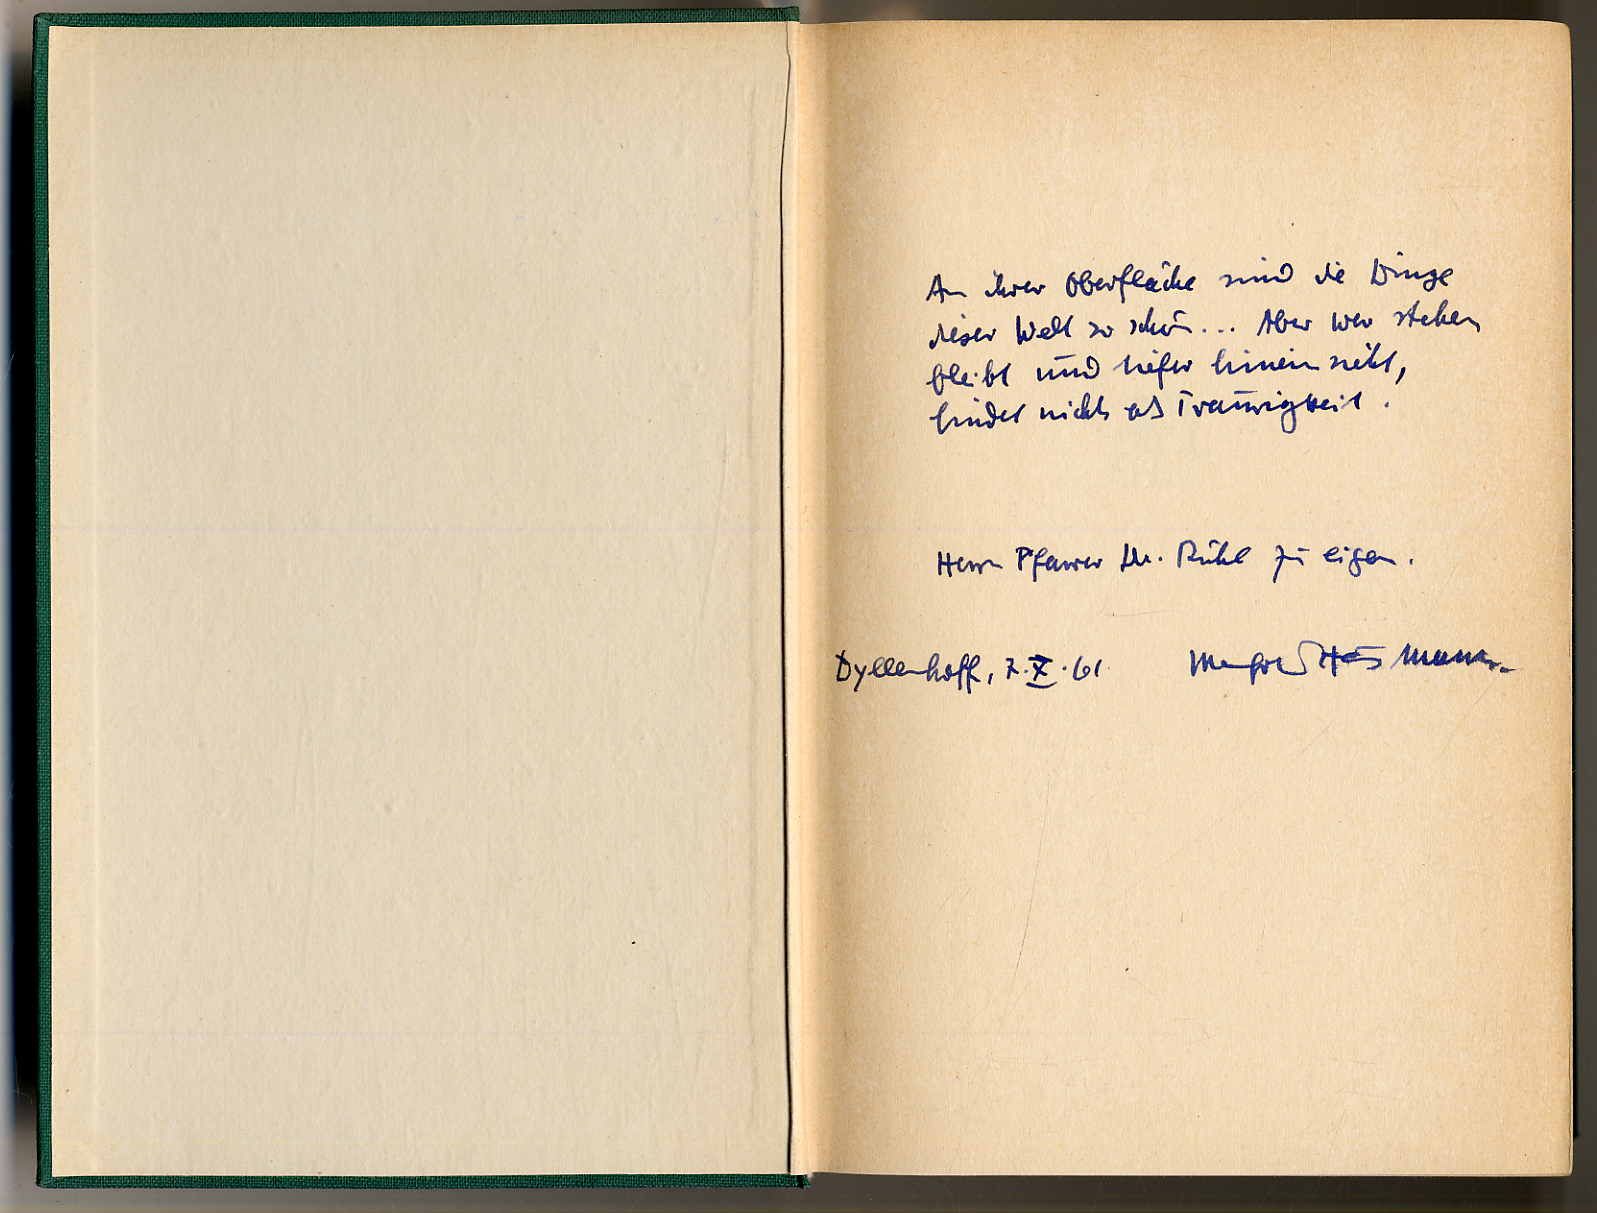 An ihrer Oberfläche sind die Dinge
dieser Welt so schön... Aber wer stehen
bleibt und tiefer hinein sieht,
findet nichts als Traurigkeit.
Herrn Pfarrer Dr. Rühl zu eigen.
Dyllenhoff, 7.X.61. Manfred Hausmann